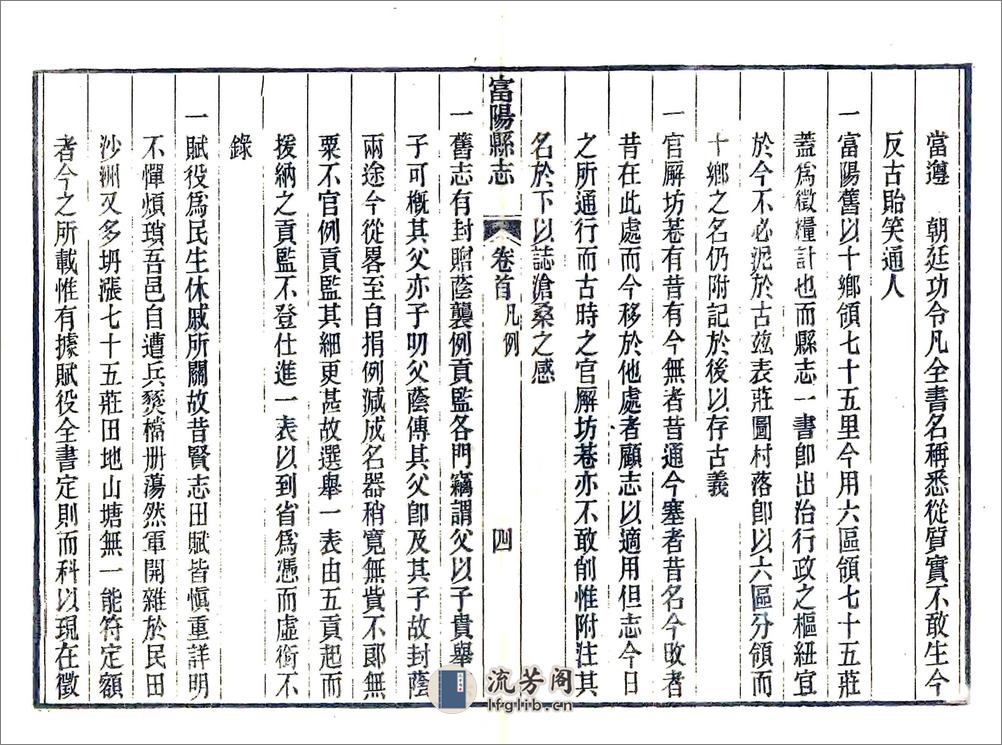 當遵　朝廷功令凡全書名稱悉從質實不敢生今
反古貽笑通人
一富陽舊以十鄉領七十五里今用六區領七十五莊
蓋爲徵糧計也而縣志一書卽出治行政之樞紐宜
於今不必泥於古兹表莊圖村落卽以六區分領而
十鄉之名仍附記於後以存古義
一官廨坊巷有昔有今無者昔通今塞者昔名今改者
昔在此處而今移於他處者顧志以適用但志今日
之所通行而古時之官廨坊巷亦不敢削惟附注其
名於下以誌滄桑之感
富陽縣志　卷首　凡例　四
一舊志有封贈蔭襲例貢監各門竊謂父以子貴舉
子可概其父亦子叨父蔭傳其父卽及其子故封蔭
兩途今從畧至自捐例減成名器稍寬無貲不郞無
粟不官例貢監其細更甚故選舉一表由五貢起而
援納之貢監不登仕進一表以到省爲憑而虛銜不
錄
一賦役爲民生休戚所關故昔賢志田賦皆愼重詳明
不憚煩瑣吾邑自遭兵燹檔册蕩然軍開雜於民田
沙洲又多坍漲七十五莊田地山塘無一能符定額
者今之所載惟有據賦役全書定則而科以現在徵
流芳阁
lfglib.cn